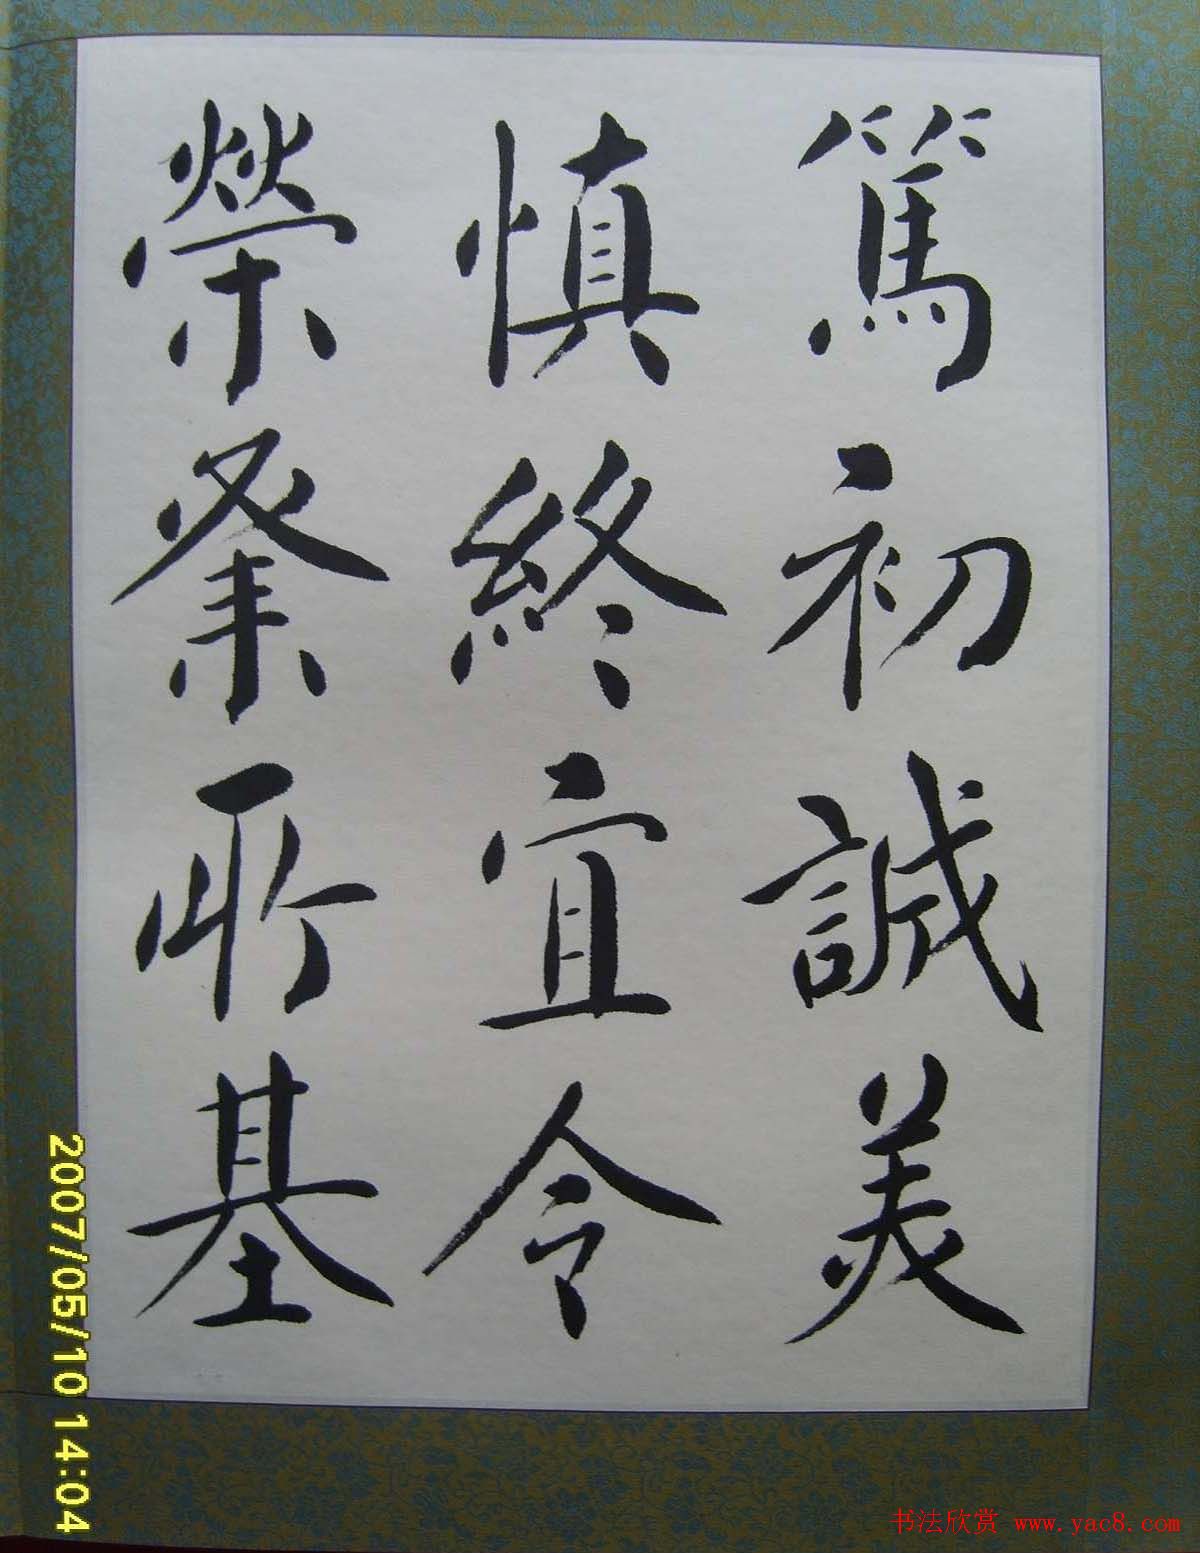 篤初誠美
慎終宜令
榮業所基
2007/05/10 14:04
书法欣赏 www.yac8.com